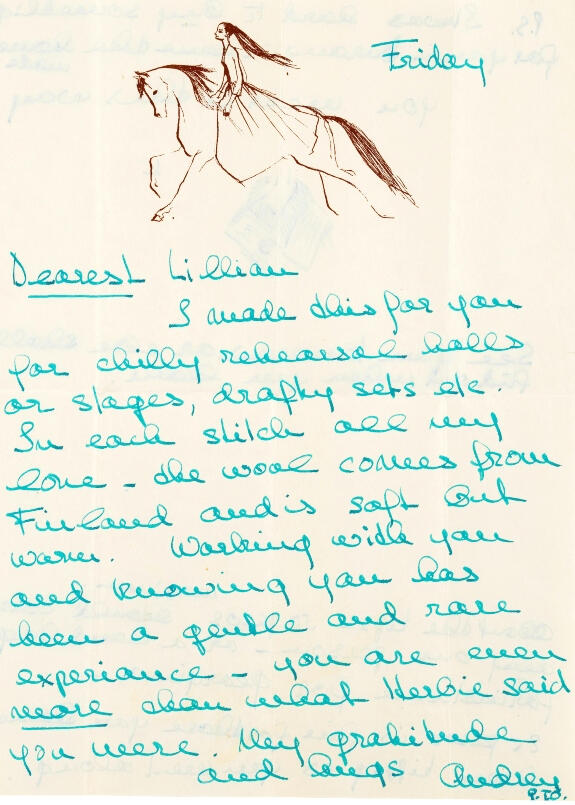 Friday
Dearest Lillian
I made this for you
for chilly rehearsal halls
or stages, drafty sets etc.
In each stitch all my
love - the wool comes from
Finland and is soft but
warm. Working with you
and knowing you has
been a gentle and rare
experiance - you are even
more than what Herbie said
you were. My gratitude
and hugs Audrey
P.T.O.